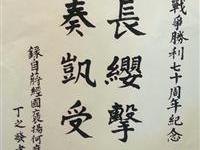 戰爭勝利七十周年紀念
長纓擊
奏凱受
錄自蔣經國褒揚何
丁之發